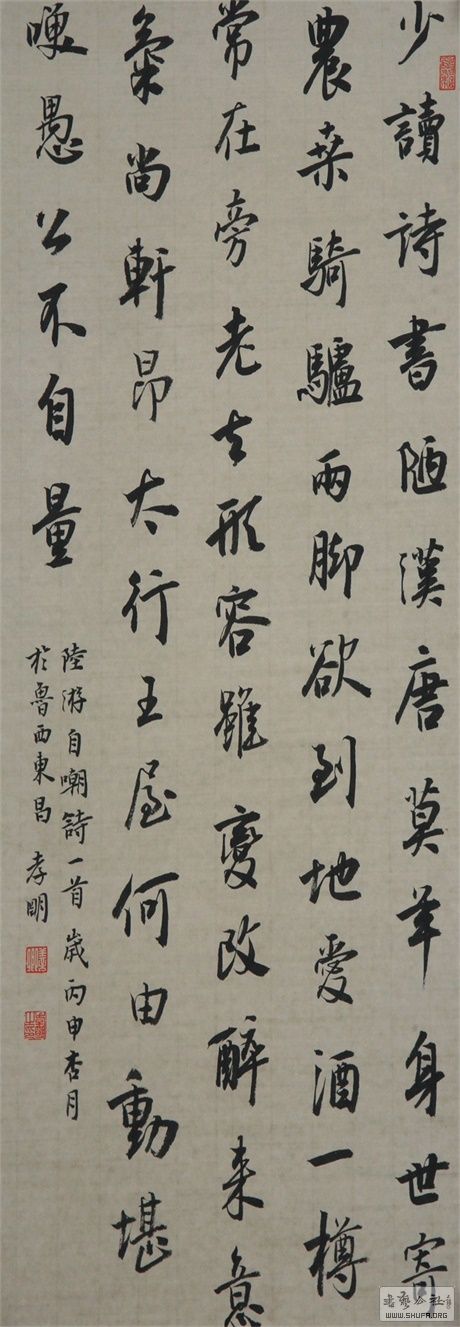 少讀詩書陋漢唐莫年身世寄
農桒騎驢兩脚欲到地愛酒一樽
常在旁老去形容雖變改醉来意
氣尚軒昂太行王屋何由動堪
㗋愚公不自量
陸游自嘲詩一首歲丙申杏月
於魯西東昌孝明
书艺公社
WWW.SHUFA.ORG